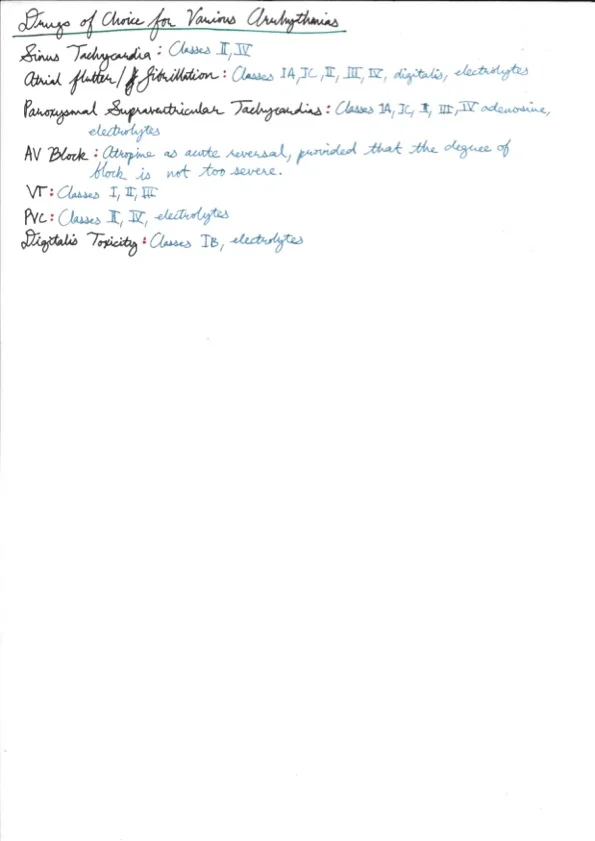 Drugs of Choice for Various Arrhythmias
Sinus Tachycardia : Classes II, IV
Atrial flutter/ fibrillation : Classes IA, IC, II, III, IV, digitalis, electrolytes
Paroxysmal Supraventricular Tachycardias : Classes IA, IC, II, III, IV adenosine,
electrolytes
AV Block : Atropine as acute reversal, provided that the degree of
block is not too severe.
VT : Classes I, II, III
PVC : Classes II, IV, electrolytes
Digitalis Toxicity : Classes IB, electrolytes